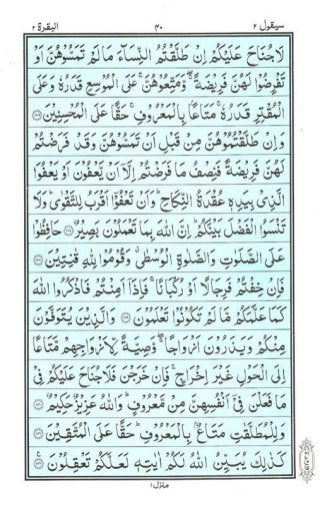 سيقول ٢ ٤٠ البقرة ٢
لَاجُنَاحَ عَلَيْكُمْ اِنْ طَلَّقْتُمُ النِّسَآءَ مَالَمْ تَمَسُّوْهُنَّ اَوْ
تَفْرِضُوْا لَهُنَّ فَرِيْضَةً ۖ وَّمَتِّعُوْهُنَّ ۚ عَلَى الْمُوْسِعِ قَدَرُهٗ وَعَلَى
الْمُقْتِرِ قَدَرُهٗ ۚ مَتَاعًاۢ بِالْمَعْرُوْفِ ۚ حَقًّا عَلَى الْمُحْسِنِيْنَ
وَاِنْ طَلَّقْتُمُوْهُنَّ مِنْ قَبْلِ اَنْ تَمَسُّوْهُنَّ وَقَدْ فَرَضْتُمْ
لَهُنَّ فَرِيْضَةً فَنِصْفُ مَا فَرَضْتُمْ اِلَّآ اَنْ يَّعْفُوْنَ اَوْ يَعْفُوَا
الَّذِيْ بِيَدِهٖ عُقْدَةُ النِّكَاحِ ۭ وَاَنْ تَعْفُوْٓا اَقْرَبُ لِلتَّقْوٰى ۭ وَلَا
تَنْسَوُا الْفَضْلَ بَيْنَكُمْ ۭ اِنَّ اللّٰهَ بِمَا تَعْمَلُوْنَ بَصِيْرٌ حَافِظُوْا
عَلَى الصَّلَوٰتِ وَالصَّلٰوةِ الْوُسْطٰى ۤ وَقُوْمُوْا لِلّٰهِ قٰنِتِيْنَ
فَاِنْ خِفْتُمْ فَرِجَالًا اَوْ رُكْبَانًا ۚ فَاِذَآ اَمِنْتُمْ فَاذْكُرُوا اللّٰهَ
كَمَا عَلَّمَكُمْ مَّا لَمْ تَكُوْنُوْا تَعْلَمُوْنَ وَالَّذِيْنَ يُتَوَفَّوْنَ
مِنْكُمْ وَيَذَرُوْنَ اَزْوَاجًا ۖ وَّصِيَّةً لِّاَزْوَاجِهِمْ مَّتَاعًا
اِلَى الْحَوْلِ غَيْرَ اِخْرَاجٍ ۚ فَاِنْ خَرَجْنَ فَلَاجُنَاحَ عَلَيْكُمْ فِيْ
مَا فَعَلْنَ فِيْٓ اَنْفُسِهِنَّ مِنْ مَّعْرُوْفٍ ۭ وَاللّٰهُ عَزِيْزٌ حَكِيْمٌ
وَلِلْمُطَلَّقٰتِ مَتَاعٌۢ بِالْمَعْرُوْفِ ۭ حَقًّا عَلَى الْمُتَّقِيْنَ
كَذٰلِكَ يُبَيِّنُ اللّٰهُ لَكُمْ اٰيٰتِهٖ لَعَلَّكُمْ تَعْقِلُوْنَ
منزل١